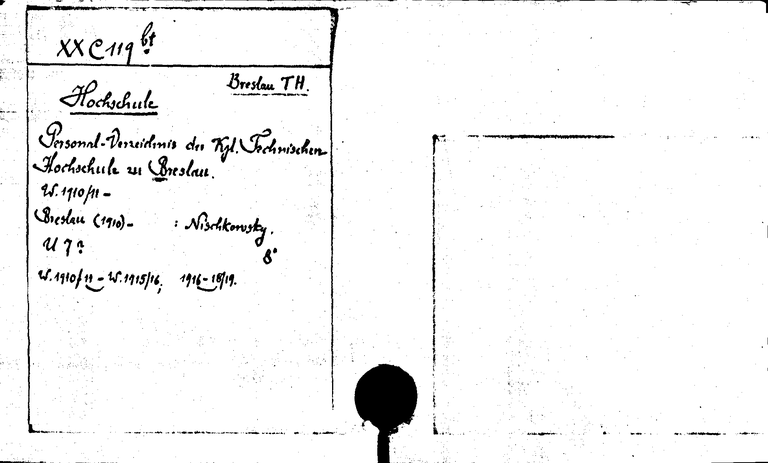 XX C 119 bt
Breslau TH.
Hochschule
Personal-Verzeichnis der Kgl. Technischen
Hochschule zu Breslau.
W. 1910/11 -
Breslau (1910) - : Nischkowsky.
U 7? 8°
W. 1910/11 - W. 1915/16; 1916 - 18/19.